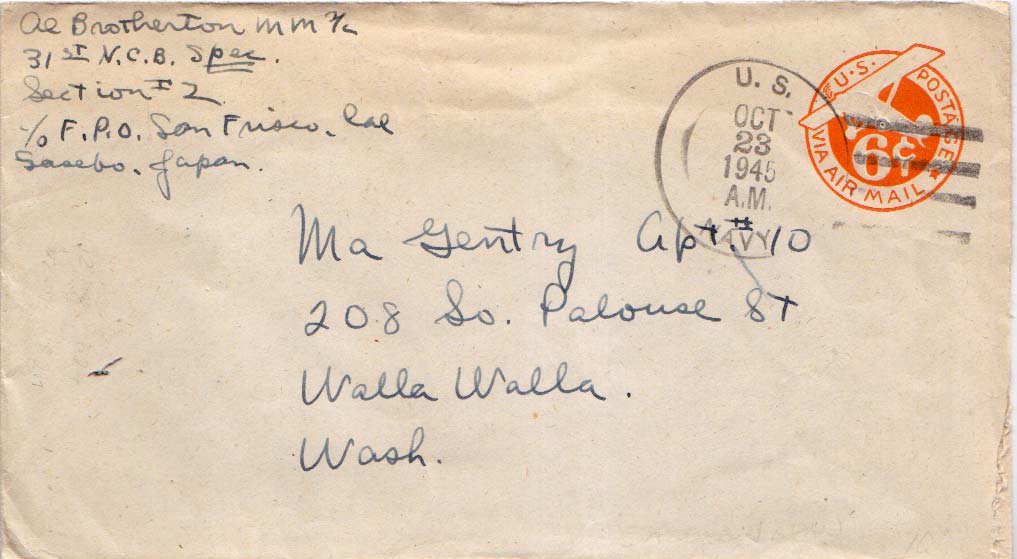 Al Brotherton MM 3/c
31st N.C.B. Spec.
Section # 2
c/o F.P.O. San Frisco. Cal
Sasebo. Japan.
U. S.
OCT
23
1945
A.M.
NAVY
U.S. POSTAGE
6¢
VIA AIR MAIL
Ma Gentry Apt. # 10
208 So. Palouse St
Walla Walla.
Wash.